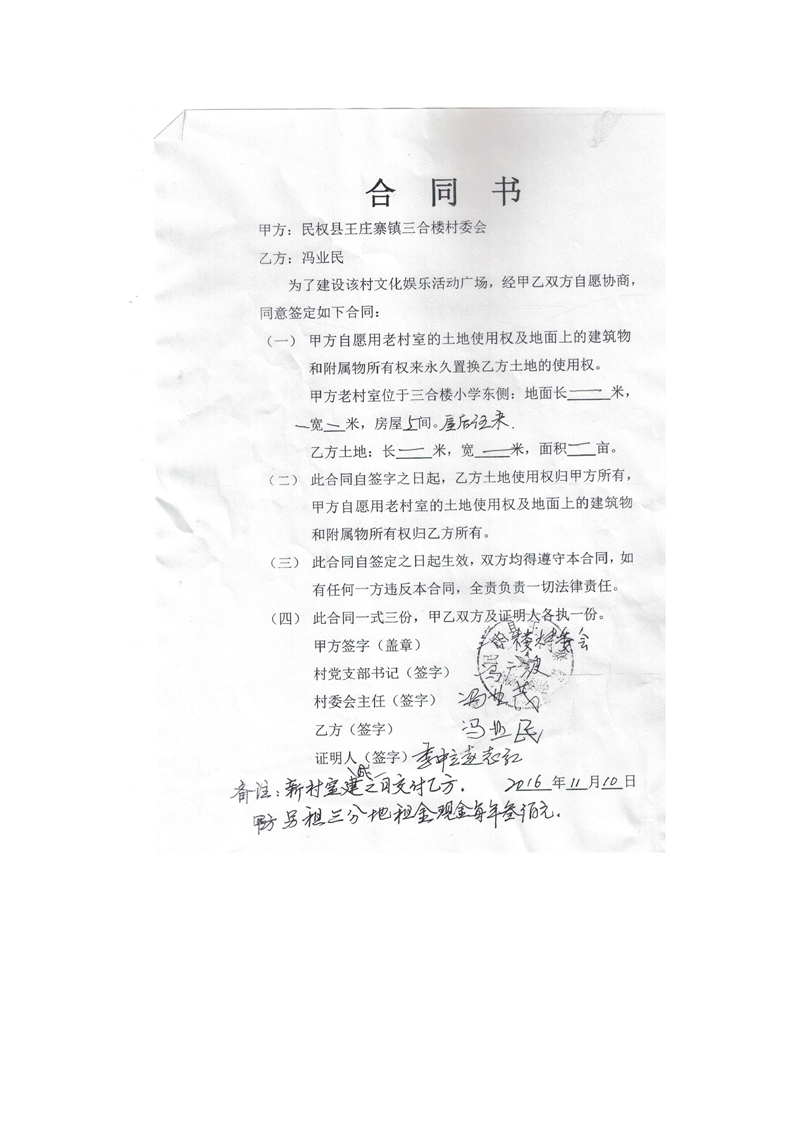 合 同 书
甲方：民权县王庄寨镇三合楼村委会
乙方：冯业民
为了建设该村文化娱乐活动广场，经甲乙双方自愿协商，
同意签定如下合同：
（一） 甲方自愿用老村室的土地使用权及地面上的建筑物
和附属物所有权来永久置换乙方土地的使用权。
甲方老村室位于三合楼小学东侧：地面长——米，
宽—米，房屋5间。屋后
乙方土地：长——米，宽——米，面积—亩。
（二） 此合同自签字之日起，乙方土地使用权归甲方所有，
甲方自愿用老村室的土地使用权及地面上的建筑物
和附属物所有权归乙方所有。
（三） 此合同自签定之日起生效，双方均得遵守本合同，如
有任何一方违反本合同，全责负责一切法律责任。
（四） 此合同一式三份，甲乙双方及证明人各执一份。
甲方签字（盖章） 三合楼村委会
村党支部书记（签字） 冯广波
村委会主任（签字） 冯业茂
乙方（签字） 冯业民
证明人（签字）
备注：新村室建成之日交付乙方． 2016 年 11 月 10 日
甲方另租三分地租金现金每年叁佰元．